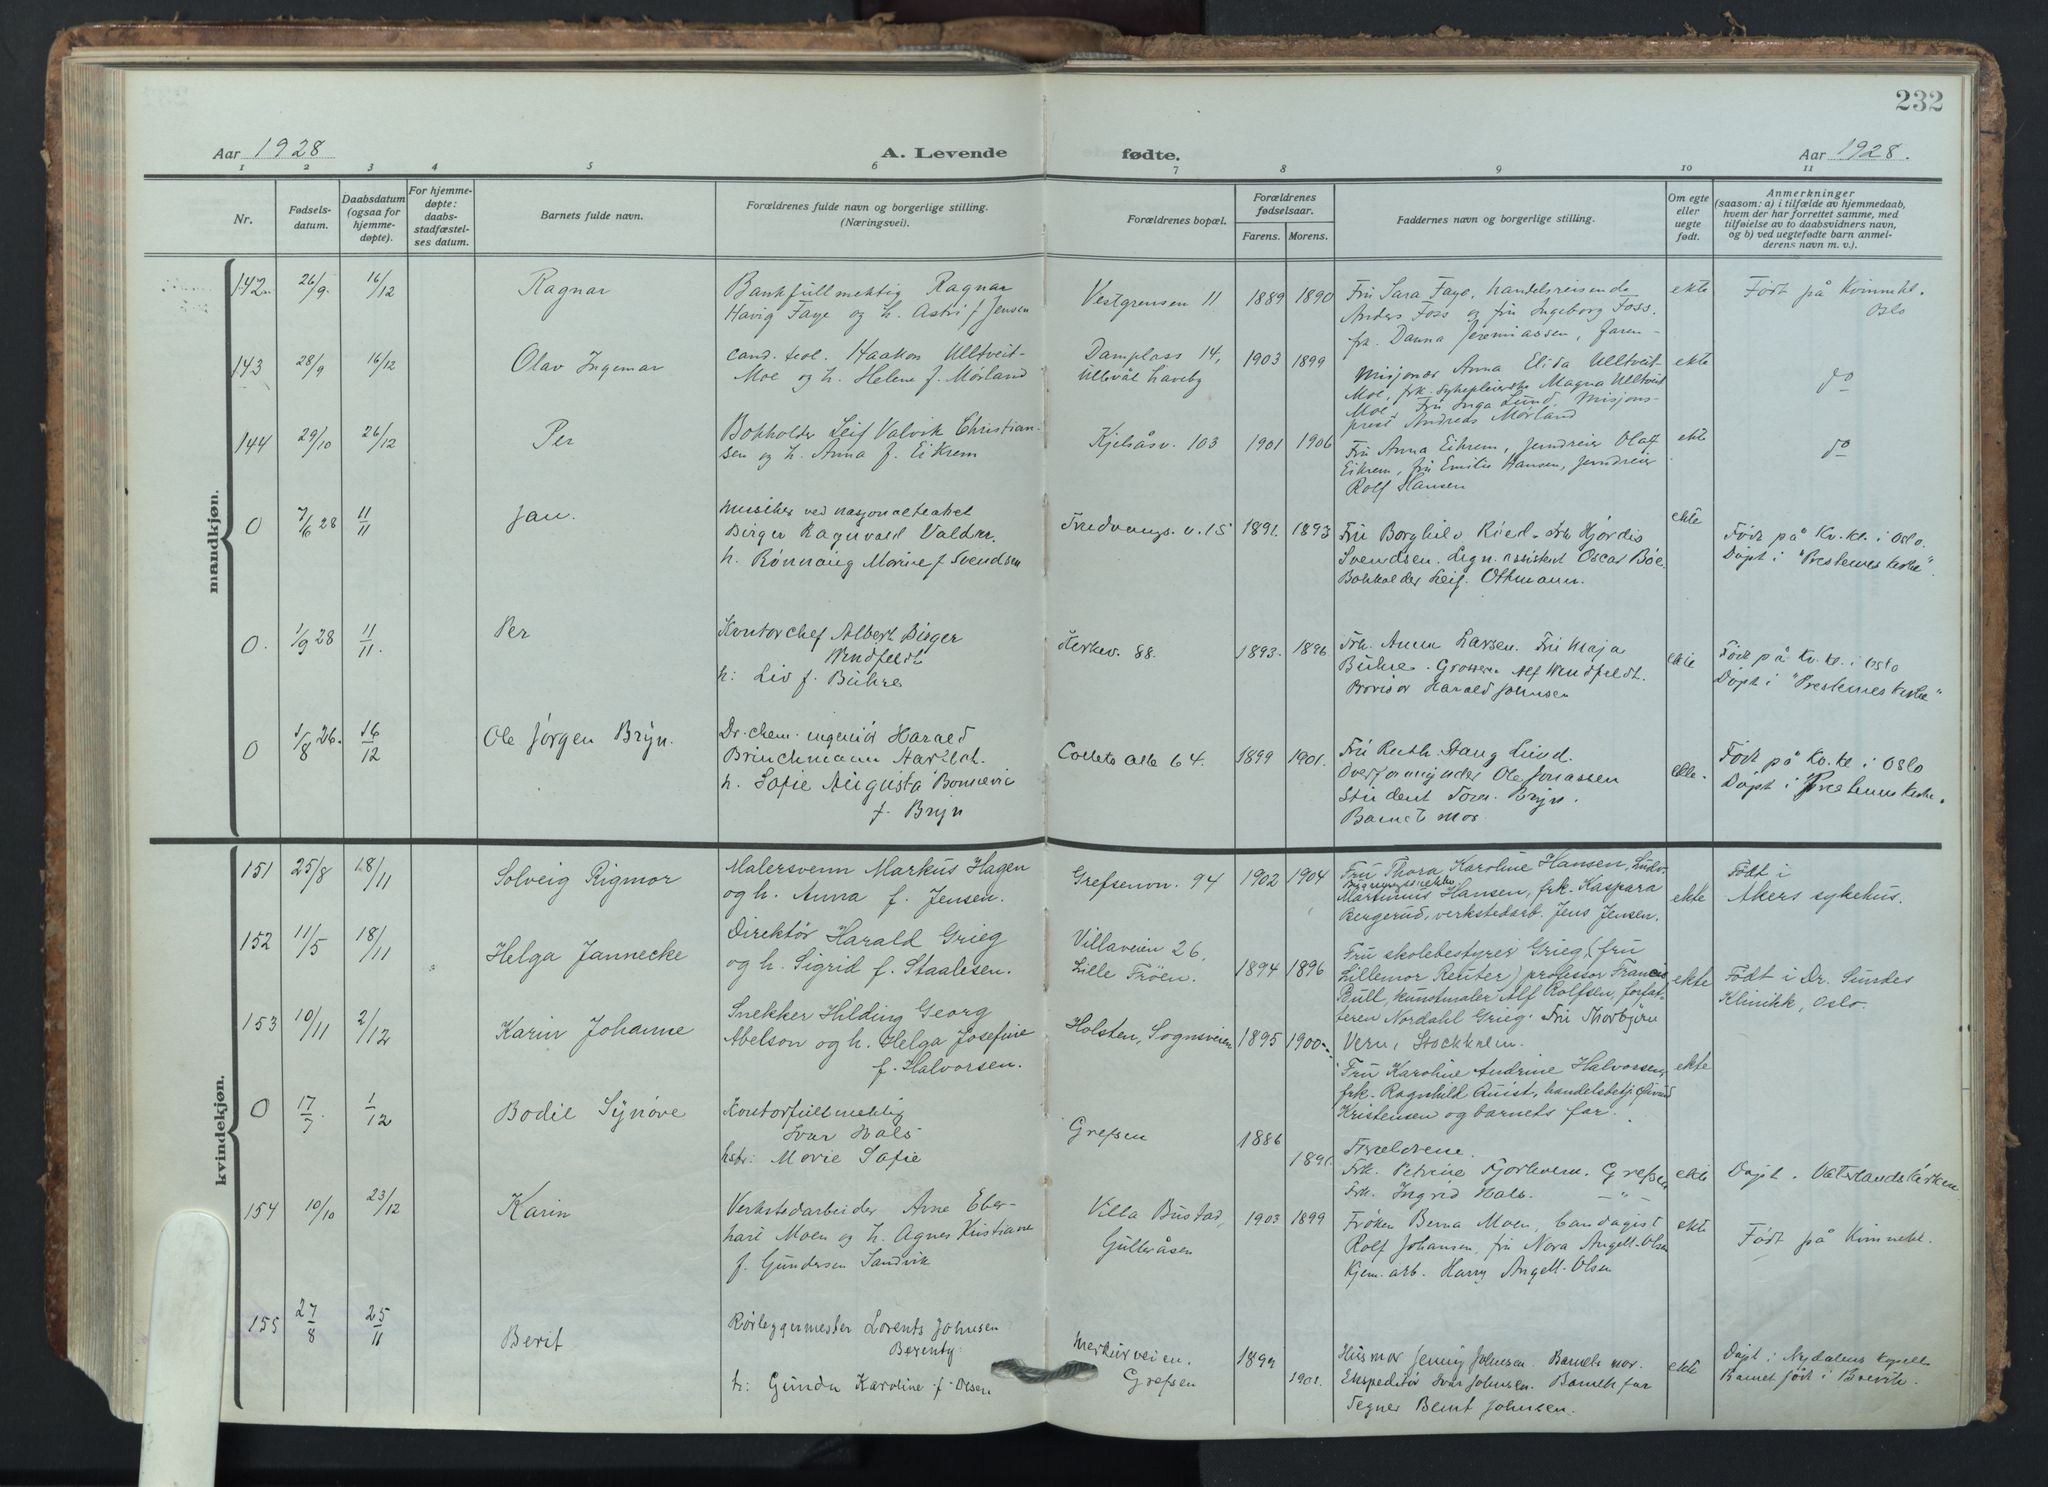 232
Aar 1928
A. Levende
fødte.
Aar 1928.
1 2 3 4 5 6 7 8 9 10 11
Nr.
Fødsels-
datum.
Daabsdatum
(ogsaa for
hjemme-
døpte).
For hjemme-
døpte:
daabs-
stadfæstel-
ses datum.
Barnets fulde navn.
Forældrenes fulde navn og borgerlige stilling.
(Næringsvei).
Forældrenes bopæl.
Forældrenes
fødselsaar.
Farens. Morens.
Faddernes navn og borgerlige stilling.
Om egte
eller
uegte
født.
Anmerkninger
(saasom: a) i tilfælde av hjemmedaab,
hvem der har forrettet samme, med
tilføielse av to daabsvidners navn,
og b) ved uegtefødte barn anmel-
derens navn m. v.).
mandkjøn.
142 26/9 16/12 Ragnar
Bankfullmektig Ragnar
Havig Faye og h. Astri f. Jensen
Vestgrensen 11 1889 1890
Fru Sara Faye, handelsreisende
Anders Foss og fru Ingeborg Foss.
frk. Danna Jeremiassen, faren
ekte
Født på Kvinnekl.
Oslo
143 28/9 16/12 Olav Ingemar
cand. teol. Haakon Ulltveit-
Moe og h. Helene f. Mørland
Damplass 14,
Ullevål haveby
1903 1899
Misjonær Anna Elida Ulltveit-
Moe, frk. sykepleierske Magna Ulltveit
Moe, Fru Inga Lund, Misjons-
prest Andreas Mørland
ekte
do
144 29/10 26/12 Per
Bokholder Leif Valvik Christian-
sen og h. Anna f. Eikrem
Kjelsåsv. 103 1901 1906
Fru Anna Eikrem, Olaf
Eikrem, fru Emilie Hansen,
Rolf Hansen
ekte
do
0 7/6 28 11/11 Jan.
Musiker ved nasjonalteatret
Birger Ragnvald
h. Marine f. Svendsen
v. 15 1891. 1893
Fru Borghild Ried. Frk Hjørdis
Svendsen. assistent Oscar Bøe.
Bokholder Leif Othmann.
ekte
Født på Kv.kl. i Oslo.
Døpt i "Prestenes kirke".
0. 1/9 28 11/11. Per
Kontorchef Albert Birger
Wendfeldt
h: Liv f. Buhre
88. 1893. 1896
Frk. Anna Larsen. Fru Maja
Buhre. Grosserer Alf Wendfeldt.
Provisor Harald Johnsen
ekte
Født på Kv.kl. i Oslo
Døpt i "Prestenes kirke"
0 1/8 26. 16/12 Ole Jørgen Bryn.
Dr. chem. ingeniør Harald
Brinchmann
h. Sofie Augusta Bonnevie
f. Bryn
Colletts alle 64. 1899 1901.
Fru Ruth Stang Lund.
Overformynder Ole Jonassen
Student Tom. Bryn.
Barnets mor.
ekte.
Født på Kv.kl i Oslo
Døpt i Prestenes kirke.
kvindekjøn.
151 25/8 18/11 Solveig Rigmor
Malersvenn Markus Hagen
og h. Anna f. Jensen.
Grefsenvn. 94 1902 1904
Fru Thora Karoline Hansen,
Martinius Hansen, frk. Kaspara
Bergerud, verkstedarb. Jens Jensen.
ekte
Født i
Akers sykehus.
152 11/5 18/11 Helga Jannecke
Direktør Harald Grieg
og h. Sigrid f. Staalesen.
Villaveien 26,
Lille Frøen.
1894 1896
Fru skolebestyrer Grieg, (fru
Lillemor Reuter) professor Francis
Bull, kunstmaler Alf Rolfsen, forfat-
teren Nordahl Grieg. Fru Thorbjørn
Vern, Stockholm.
ekte
Født i Dr. Sundes
Klinikk, Oslo.
153 10/11 2/12 Karin Johanne
Snekker Hilding Georg
Abelson og h. Helga Josefine
f. Halvorsen.
Holsten, Sognsveien 1895 1900
Fru Karoline Andrine Halvorsen,
frk. Ragnhild Quist, handelsbetj. Øivind
Kristensen og barnets far.
ekte
0 17/7 1/12 Bodil Synøve
Kontorfullmektig
Ivar Hals
hstr: Marie Sofie
Grefsen 1886
1891.
Forældrene.
Frk. Petrine Fjorholm. Grefsen
Frk. Ingrid Hals. — " —
ekte
Døpt. Vaterlandskirken.
154 10/10 23/12 Karin
Verkstedarbeider Arne Eber-
hart Moen og h. Agnes Kristiane
f. Gundersen Sandvik
Villa Bustad,
Gulleråsen
1903 1899
Frøken Berna Moen, bandagist
Rolf Johansen, fru Nora Angell-Olsen
Kjem. arb. Harry Angell-Olsen
ekte
Født på Kvinnekl.
155 27/8 25/11 Berit
Rørleggermester Lorents Johnsen
h: Gunda Karoline f. Olsen
Merkurveien.
Grefsen
1899
1901.
Husmor Jenny Johnsen. Barnets mor.
Ekspeditør Ivar Johnsen. Barnets far
Tegner Bernt Johnsen.
ekte
Døpt i Nydalens kapell
Barnet født i Brevik.